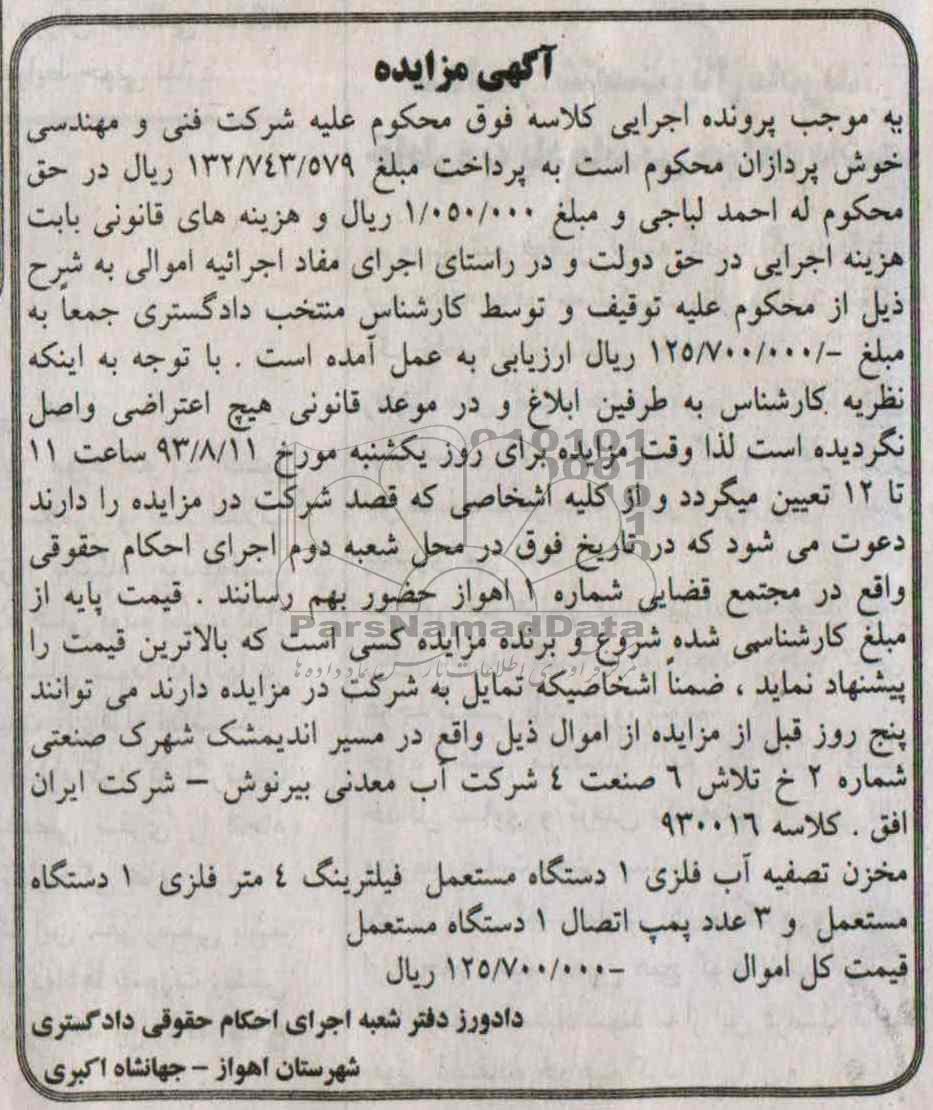 آگهی مزایده
به موجب پرونده اجرایی کلاسه فوق محکوم علیه شرکت فنی و مهندسی
خوش پردازان محکوم است به پرداخت مبلغ ۱۳۲/۷٤۳/۵۷۹ ریال در حق
محکوم له احمد لباجی و مبلغ ۱/۰۵۰/۰۰۰ ریال و هزینه های قانونی بابت
هزینه اجرایی در حق دولت و در راستای اجرای مفاد اجرائیه اموالی به شرح
ذیل از محکوم علیه توقیف و توسط کارشناس منتخب دادگستری جمعاً به
مبلغ -/۱۲۵/۷۰۰/۰۰۰ ریال ارزیابی به عمل آمده است . با توجه به اینکه
نظریه کارشناس به طرفین ابلاغ و در موعد قانونی هیچ اعتراضی واصل
نگردیده است لذا وقت مزایده برای روز یکشنبه مورخ ۹۳/۸/۱۱ ساعت ۱۱
تا ۱۲ تعیین میگردد و از کلیه اشخاصی که قصد شرکت در مزایده را دارند
دعوت می شود که در تاریخ فوق در محل شعبه دوم اجرای احکام حقوقی
واقع در مجتمع قضایی شماره ۱ اهواز حضور بهم رسانند . قیمت پایه از
ParsNamadData
مبلغ کارشناسی شده شروع و برنده مزایده کسی است که بالاترین قیمت را
پیشنهاد نماید ، ضمناً اشخاصیکه تمایل به شرکت در مزایده دارند می توانند
پنج روز قبل از مزایده از اموال ذیل واقع در مسیر اندیمشک شهرک صنعتی
شماره ۲ خ تلاش ٦ صنعت ٤ شرکت آب معدنی بیرنوش – شرکت ایران
افق . کلاسه ۹۳۰۰۱٦
مخزن تصفیه آب فلزی ۱ دستگاه مستعمل فیلترینگ ٤ متر فلزی ۱ دستگاه
مستعمل و ۳ عدد پمپ اتصال ۱ دستگاه مستعمل
قیمت کل اموال -۱۲۵/۷۰۰/۰۰۰ ریال
دادورز دفتر شعبه اجرای احکام حقوقی دادگستری
شهرستان اهواز – جهانشاه اکبری